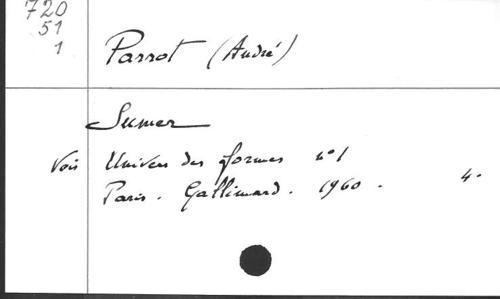 720
51
1
Parrot (André)
Sumer
Voir Univers des formes n°1
Paris. Gallimard. 1960. 4°